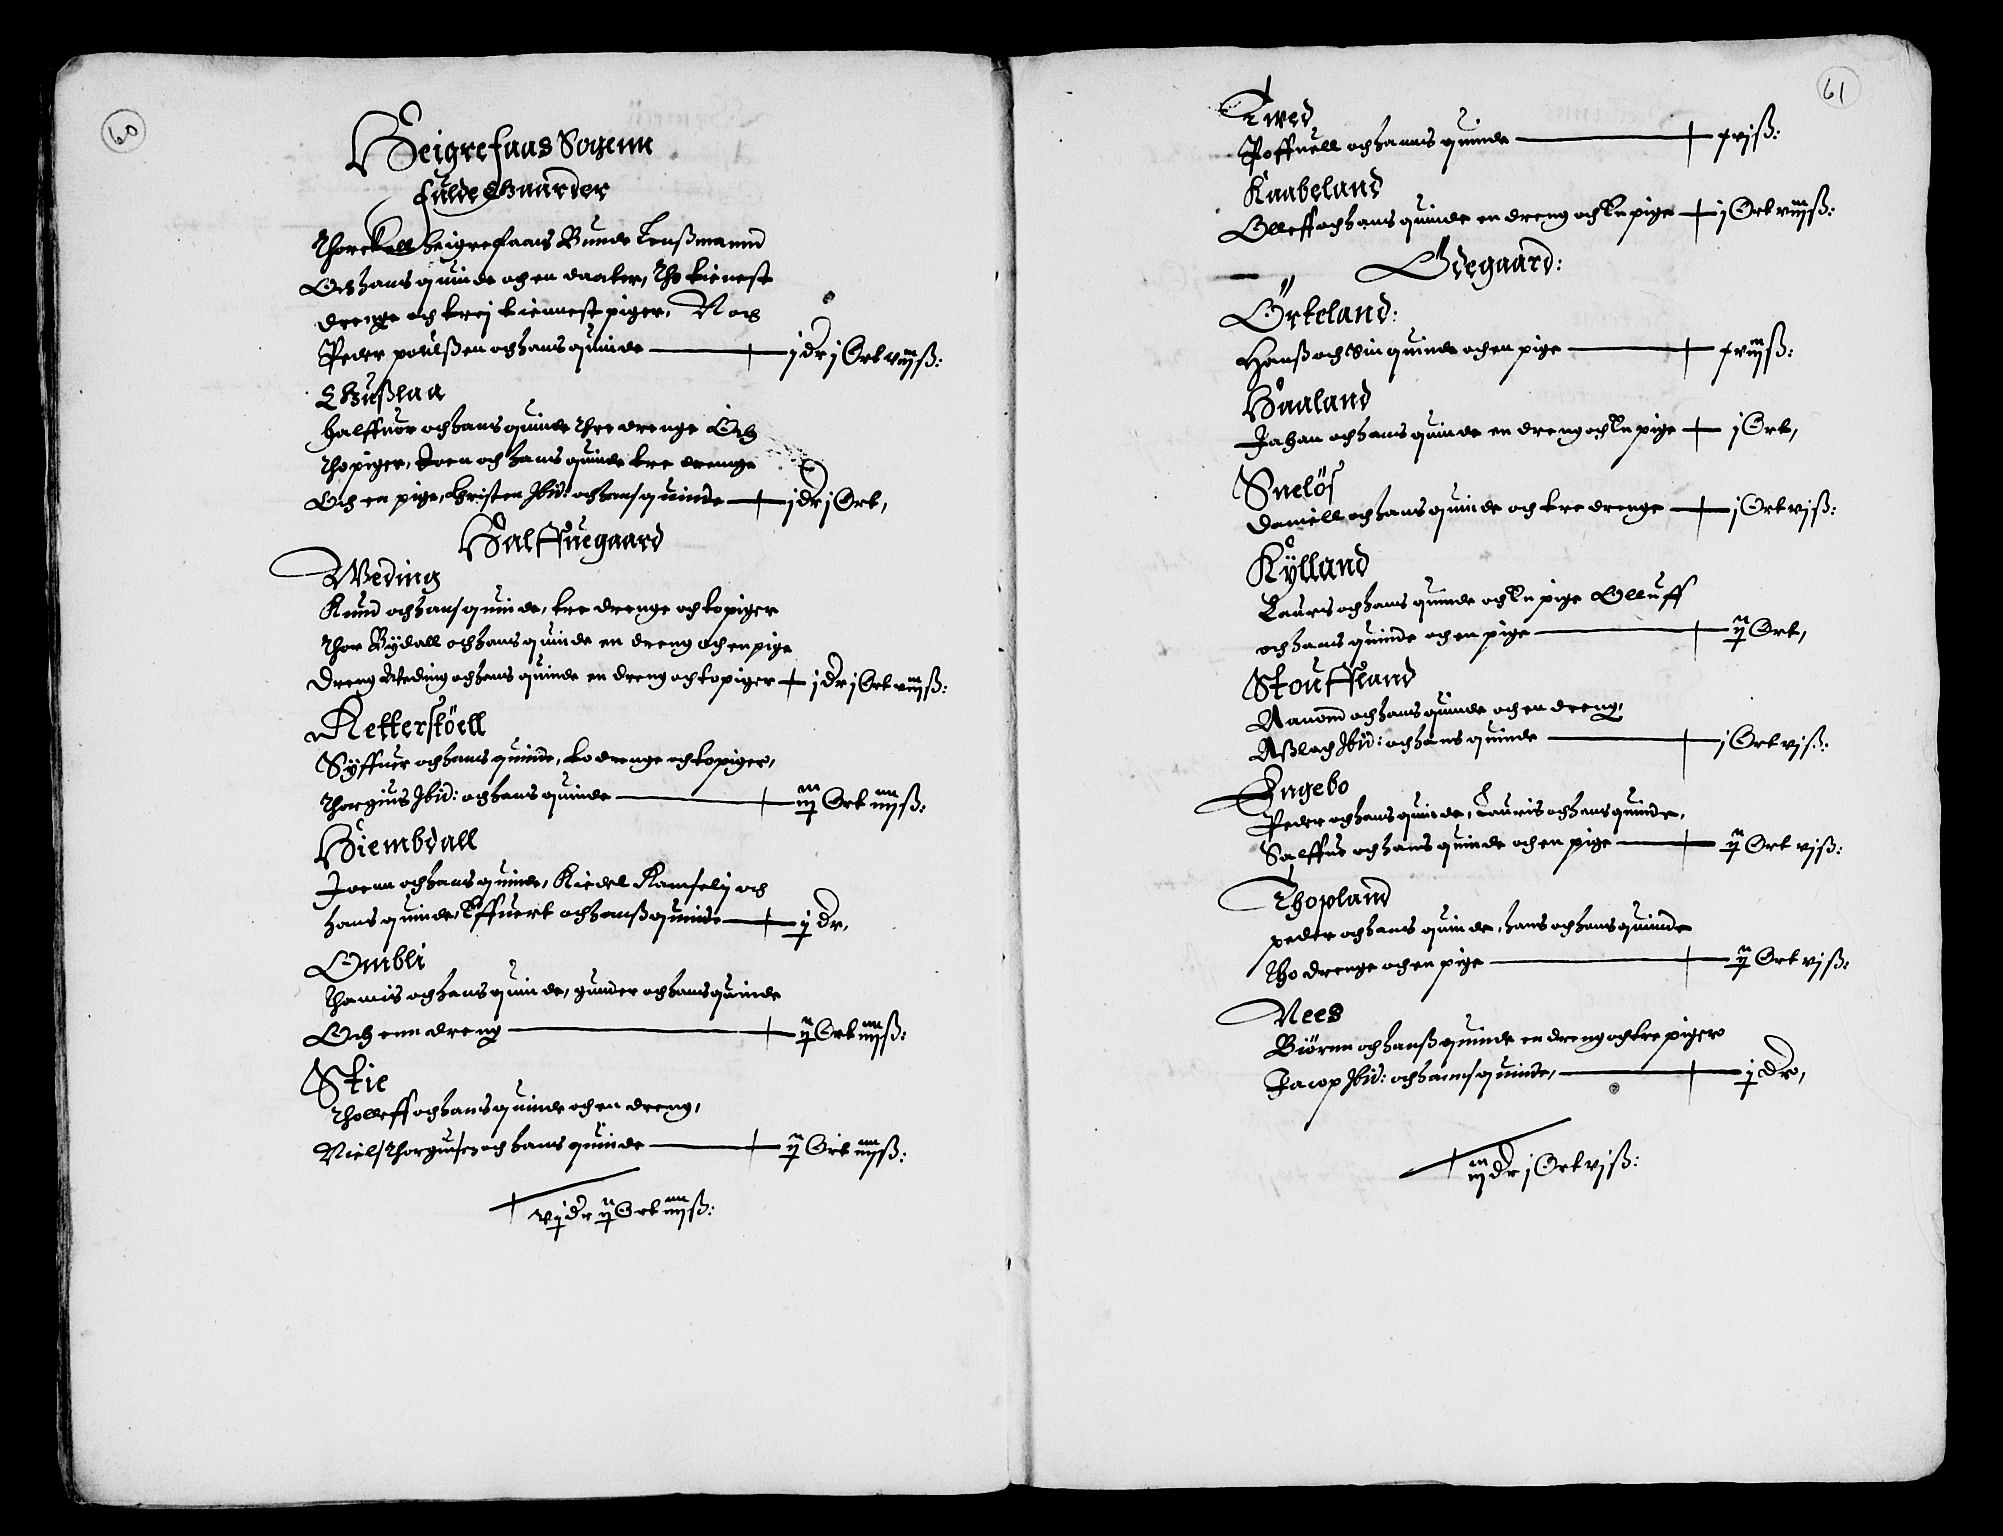 60
Heigrefaas Sogenn
fulde Gaarder
Thorckell heigrefaans Bunde Lenßmannd
Och hans quinde och en daater, tho tienest
drenge och trej tiennest piger, Noch
Peder poulßen och hans quinde — j dr j Ort viijß:
Gußlaa
halffuor och hans quinde thre drenge Och
tho piger, Joen och hans quinde tre drenge
Och en pige, Christen Ibid: och hans quinde — j dr j Ort,
Halffuegaard
Weding
Knud och hans quinde, tre drenge och to piger
Thor Rÿdall och hans quinde en dreng och en pige
Dreng Weding och hans quinde en dreng och to piger — j dr j Ort viijß:
Retterstöell
Sÿffuer och hans quinde, to drenge och to piger,
Thorgius Ibid: och hans quinde — iij Ort iiijß:
Hiembdall
Joenn och hans quinde, Kiedel Ramselij och
hans quinde, Effuert och hanß quinde — j dr,
Ombli
Thamis och hans quinde, gunder och hans quinde
Och enn dreng — ij Ort iiijß:
Stie
Tholleff och hans quinde och en dreng,
Niels Thorgiusen och hans quinde — ij Ort iiijß:
vj dr ij Ort iiijß:
61
Tued
Poffuell och hanns quinde — xvjß:
Kaabeland
Olleff och hans quinde en dreng och en pige — j Ort viijß:
Ödegaard:
Örkeland:
Hanß och Sin quinde och en pige — xviijß:
Haaland
Jahan och hans quinde en dreng och en pige — j Ort,
Snelös
Daniell och hans quinde och tre drenge — j Ort vjß:
Kÿlland
Lauris och hans quinde och en pige Olluff
och hans quinde och en pige — ij Ort,
Stouffland
Aanond och hans quinde och en dreng,
Aßlach Ibid: och hans quinde — j Ort vjß:
Engebo
Peder och hans quinde, Lauris och hans quinde,
Salffue och hans quinde och en pige — ij Ort vjß:
Thopland
peder och hans quinde, hans och hans quinde
tho drenge och en pige — ij Ort vjß:
Nees
Biörnn och hanß quinde en dreng och tre piger
Jacop Ibid: och hanns quinde, — j dr,
iij dr j Ort vjß: